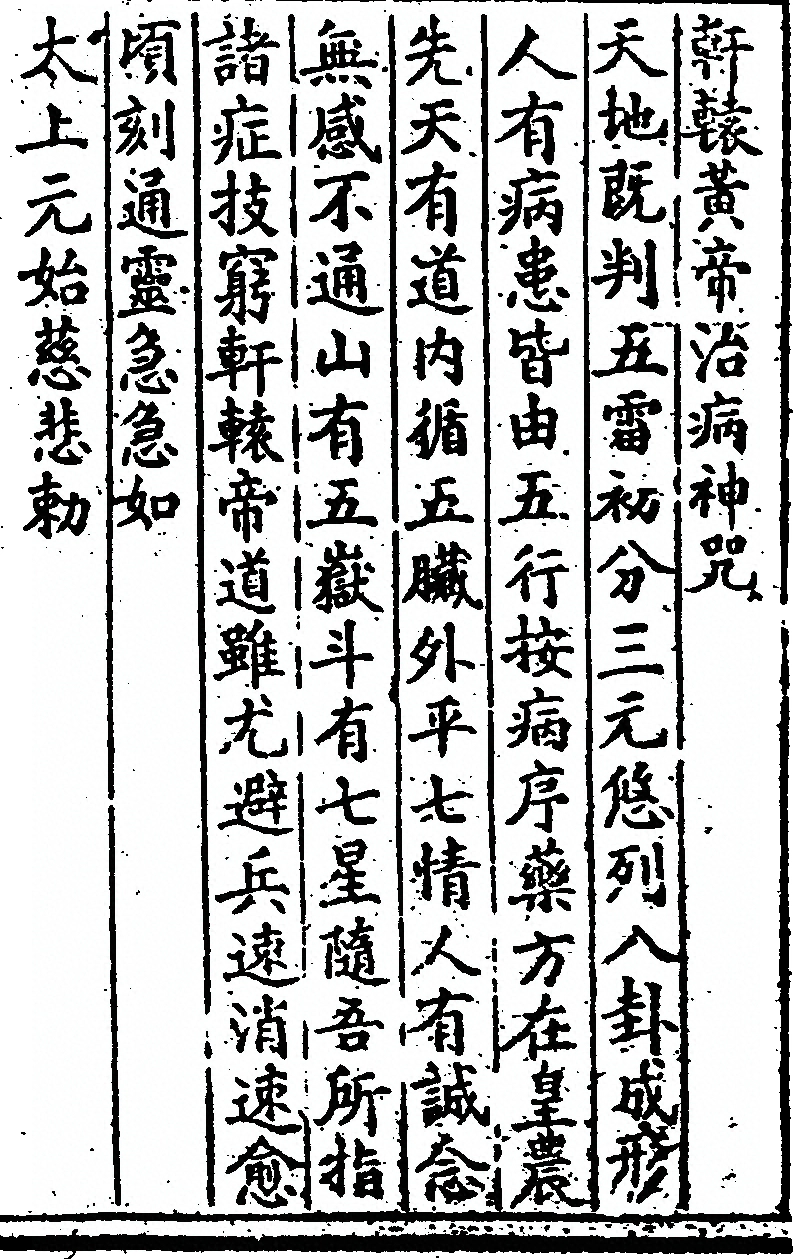 軒轅黃帝治病神咒
天地既判五雷初分三元悠列八卦成形
人有病患皆由五行按病序藥方在皇農
先天有道内循五臟外平七情人有誠念
無感不通山有五嶽斗有七星隨吾所指
諸症技窮軒轅帝道雖尤避兵速消速愈
頃刻通靈急急如
太上元始慈悲勅